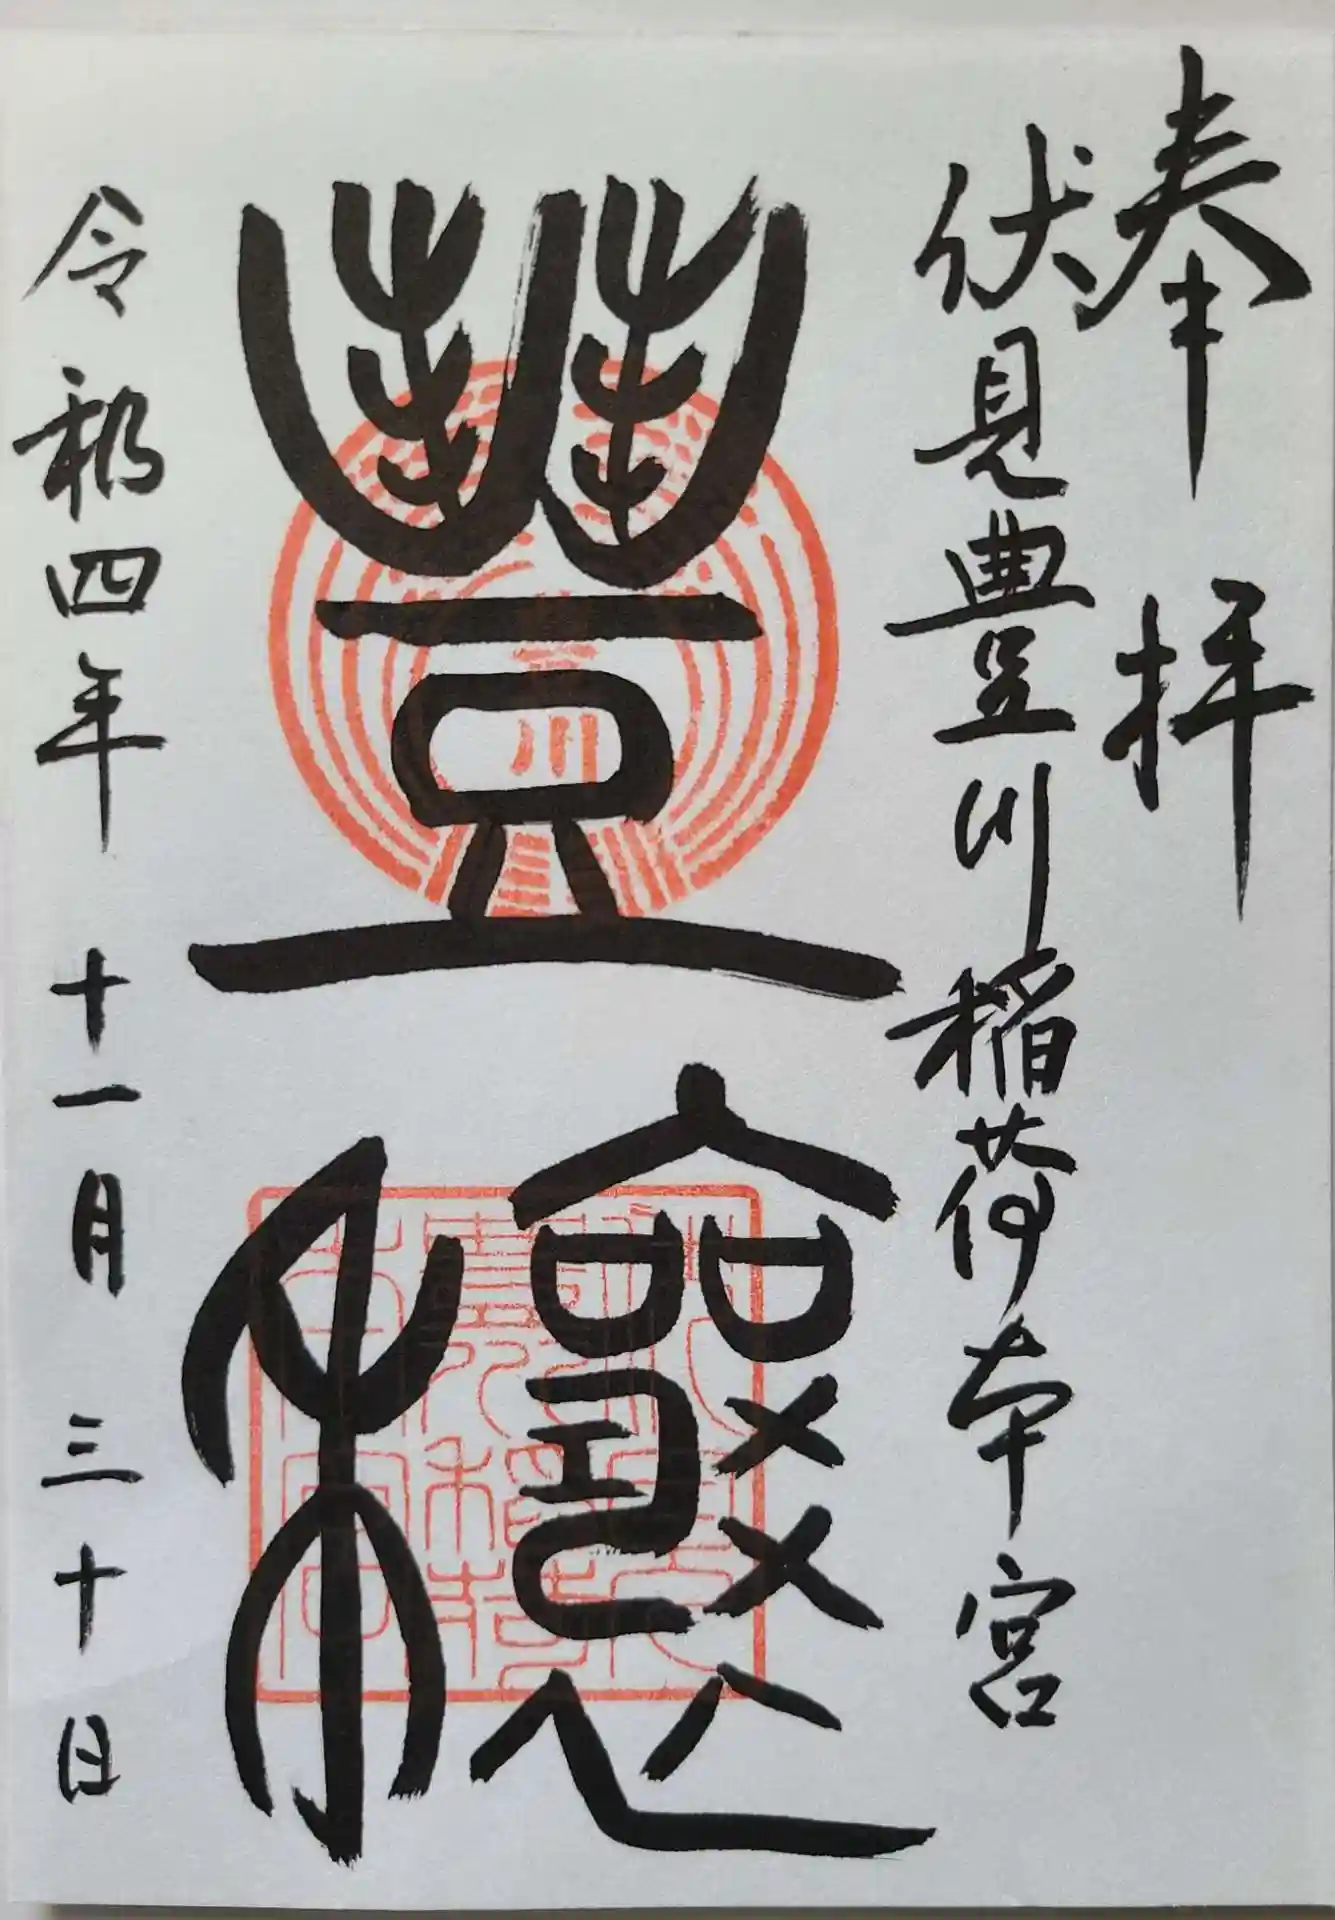 奉拝
伏見豊川稲荷本宮
豐穰
令和四年 十一月 三十日